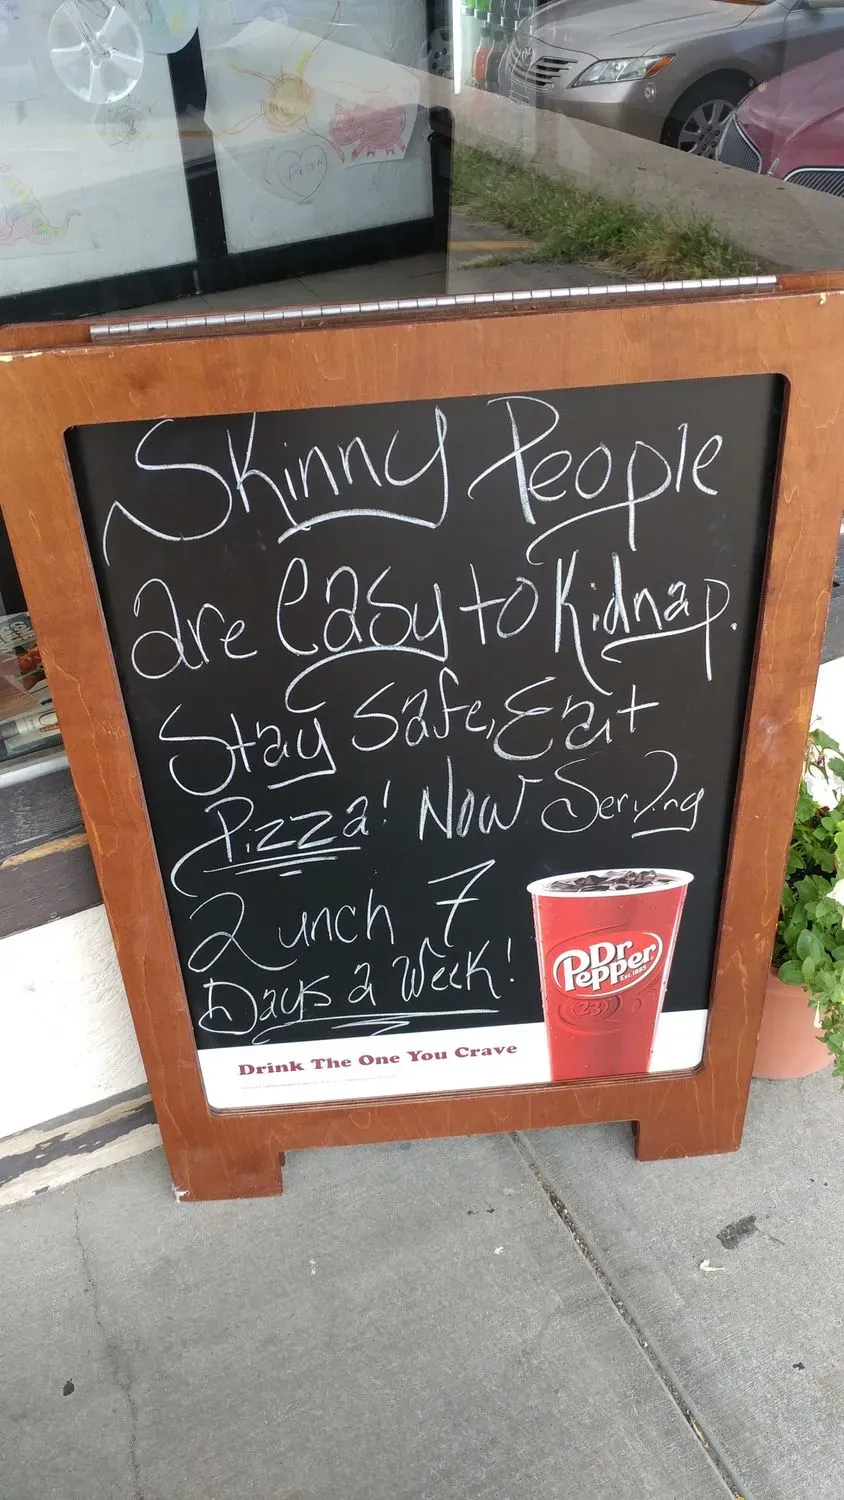 Skinny People
are easy to Kidnap.
Stay Safe, Eat
Pizza! Now Serving
Lunch 7
Days a Week!
Dr
Pepper
EST. 1885
23
Drink The One You Crave